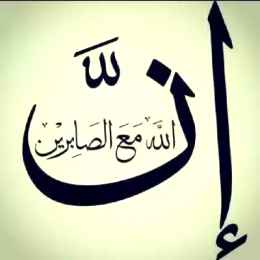 إنَّ اللَّه مَعَ الصَابِريْن